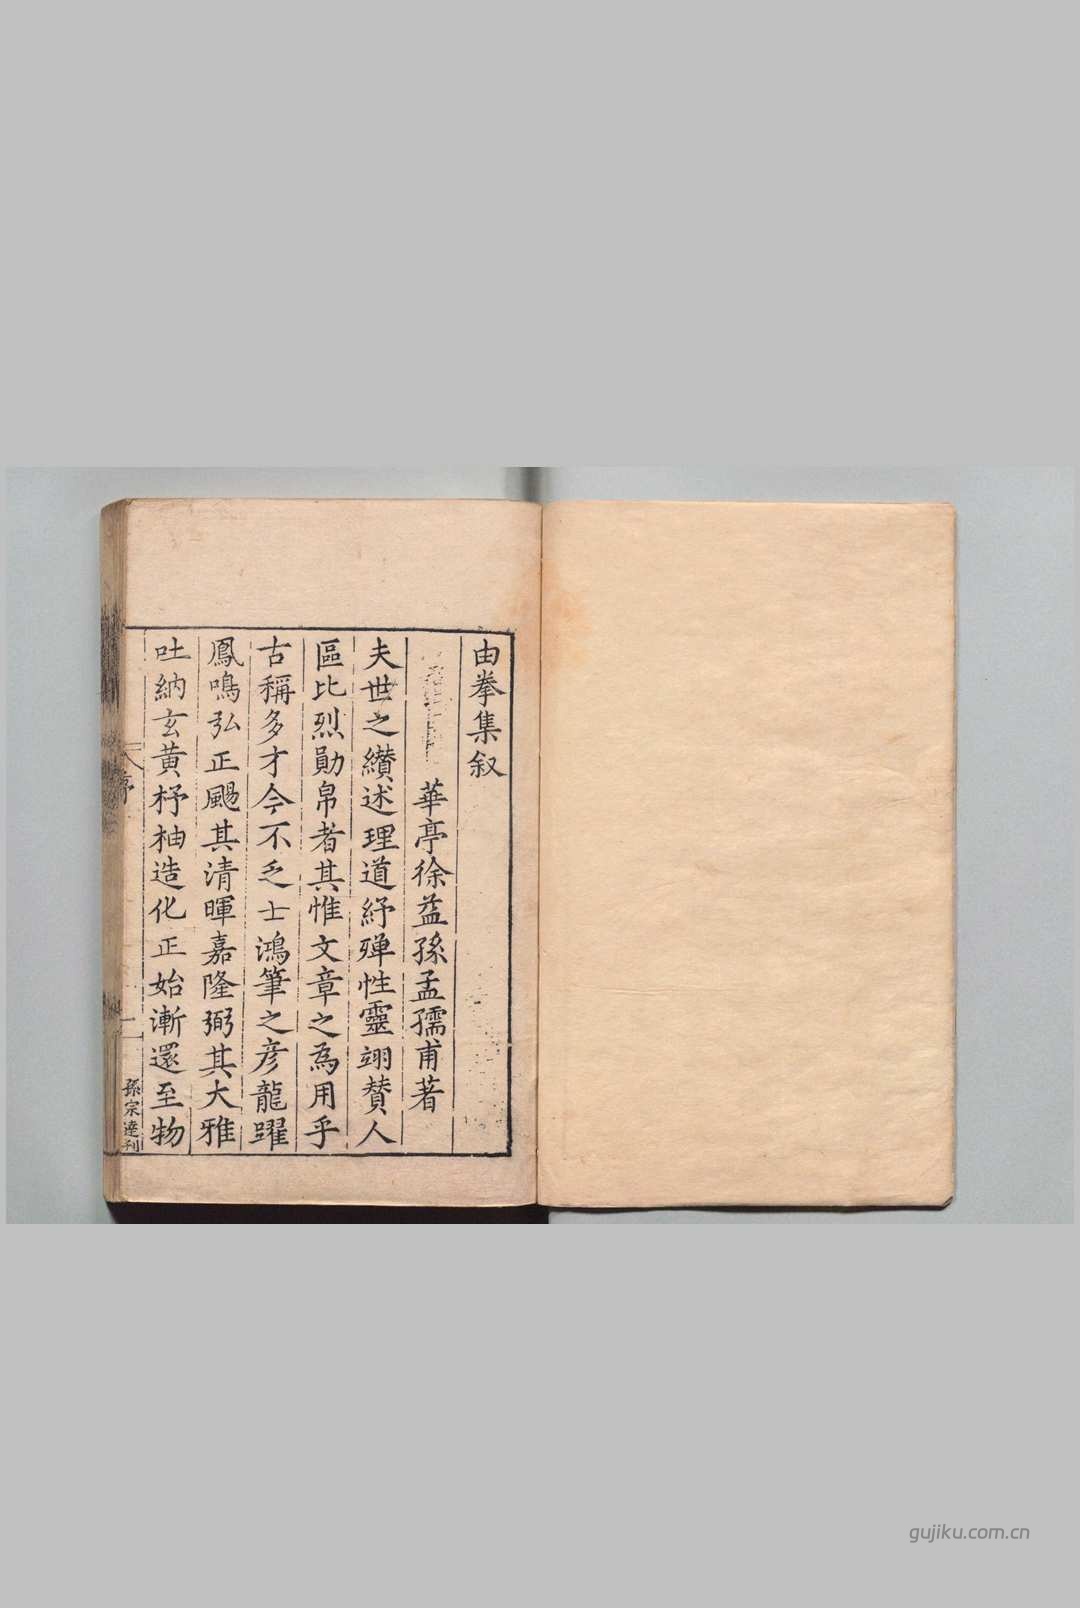 由拳集叙
華亭徐益孫孟孺甫著
夫世之纘述理道紓殫性靈翊賛人
區比烈勛帛者其惟文章之為用乎
古稱多才今不乏士鴻筆之彦龍躍
鳳鳴弘正颺其清暉嘉隆弼其大雅
吐納玄黄杼柚造化正始漸還至物
序
一
孫宗達刊
gujiku.com.cn